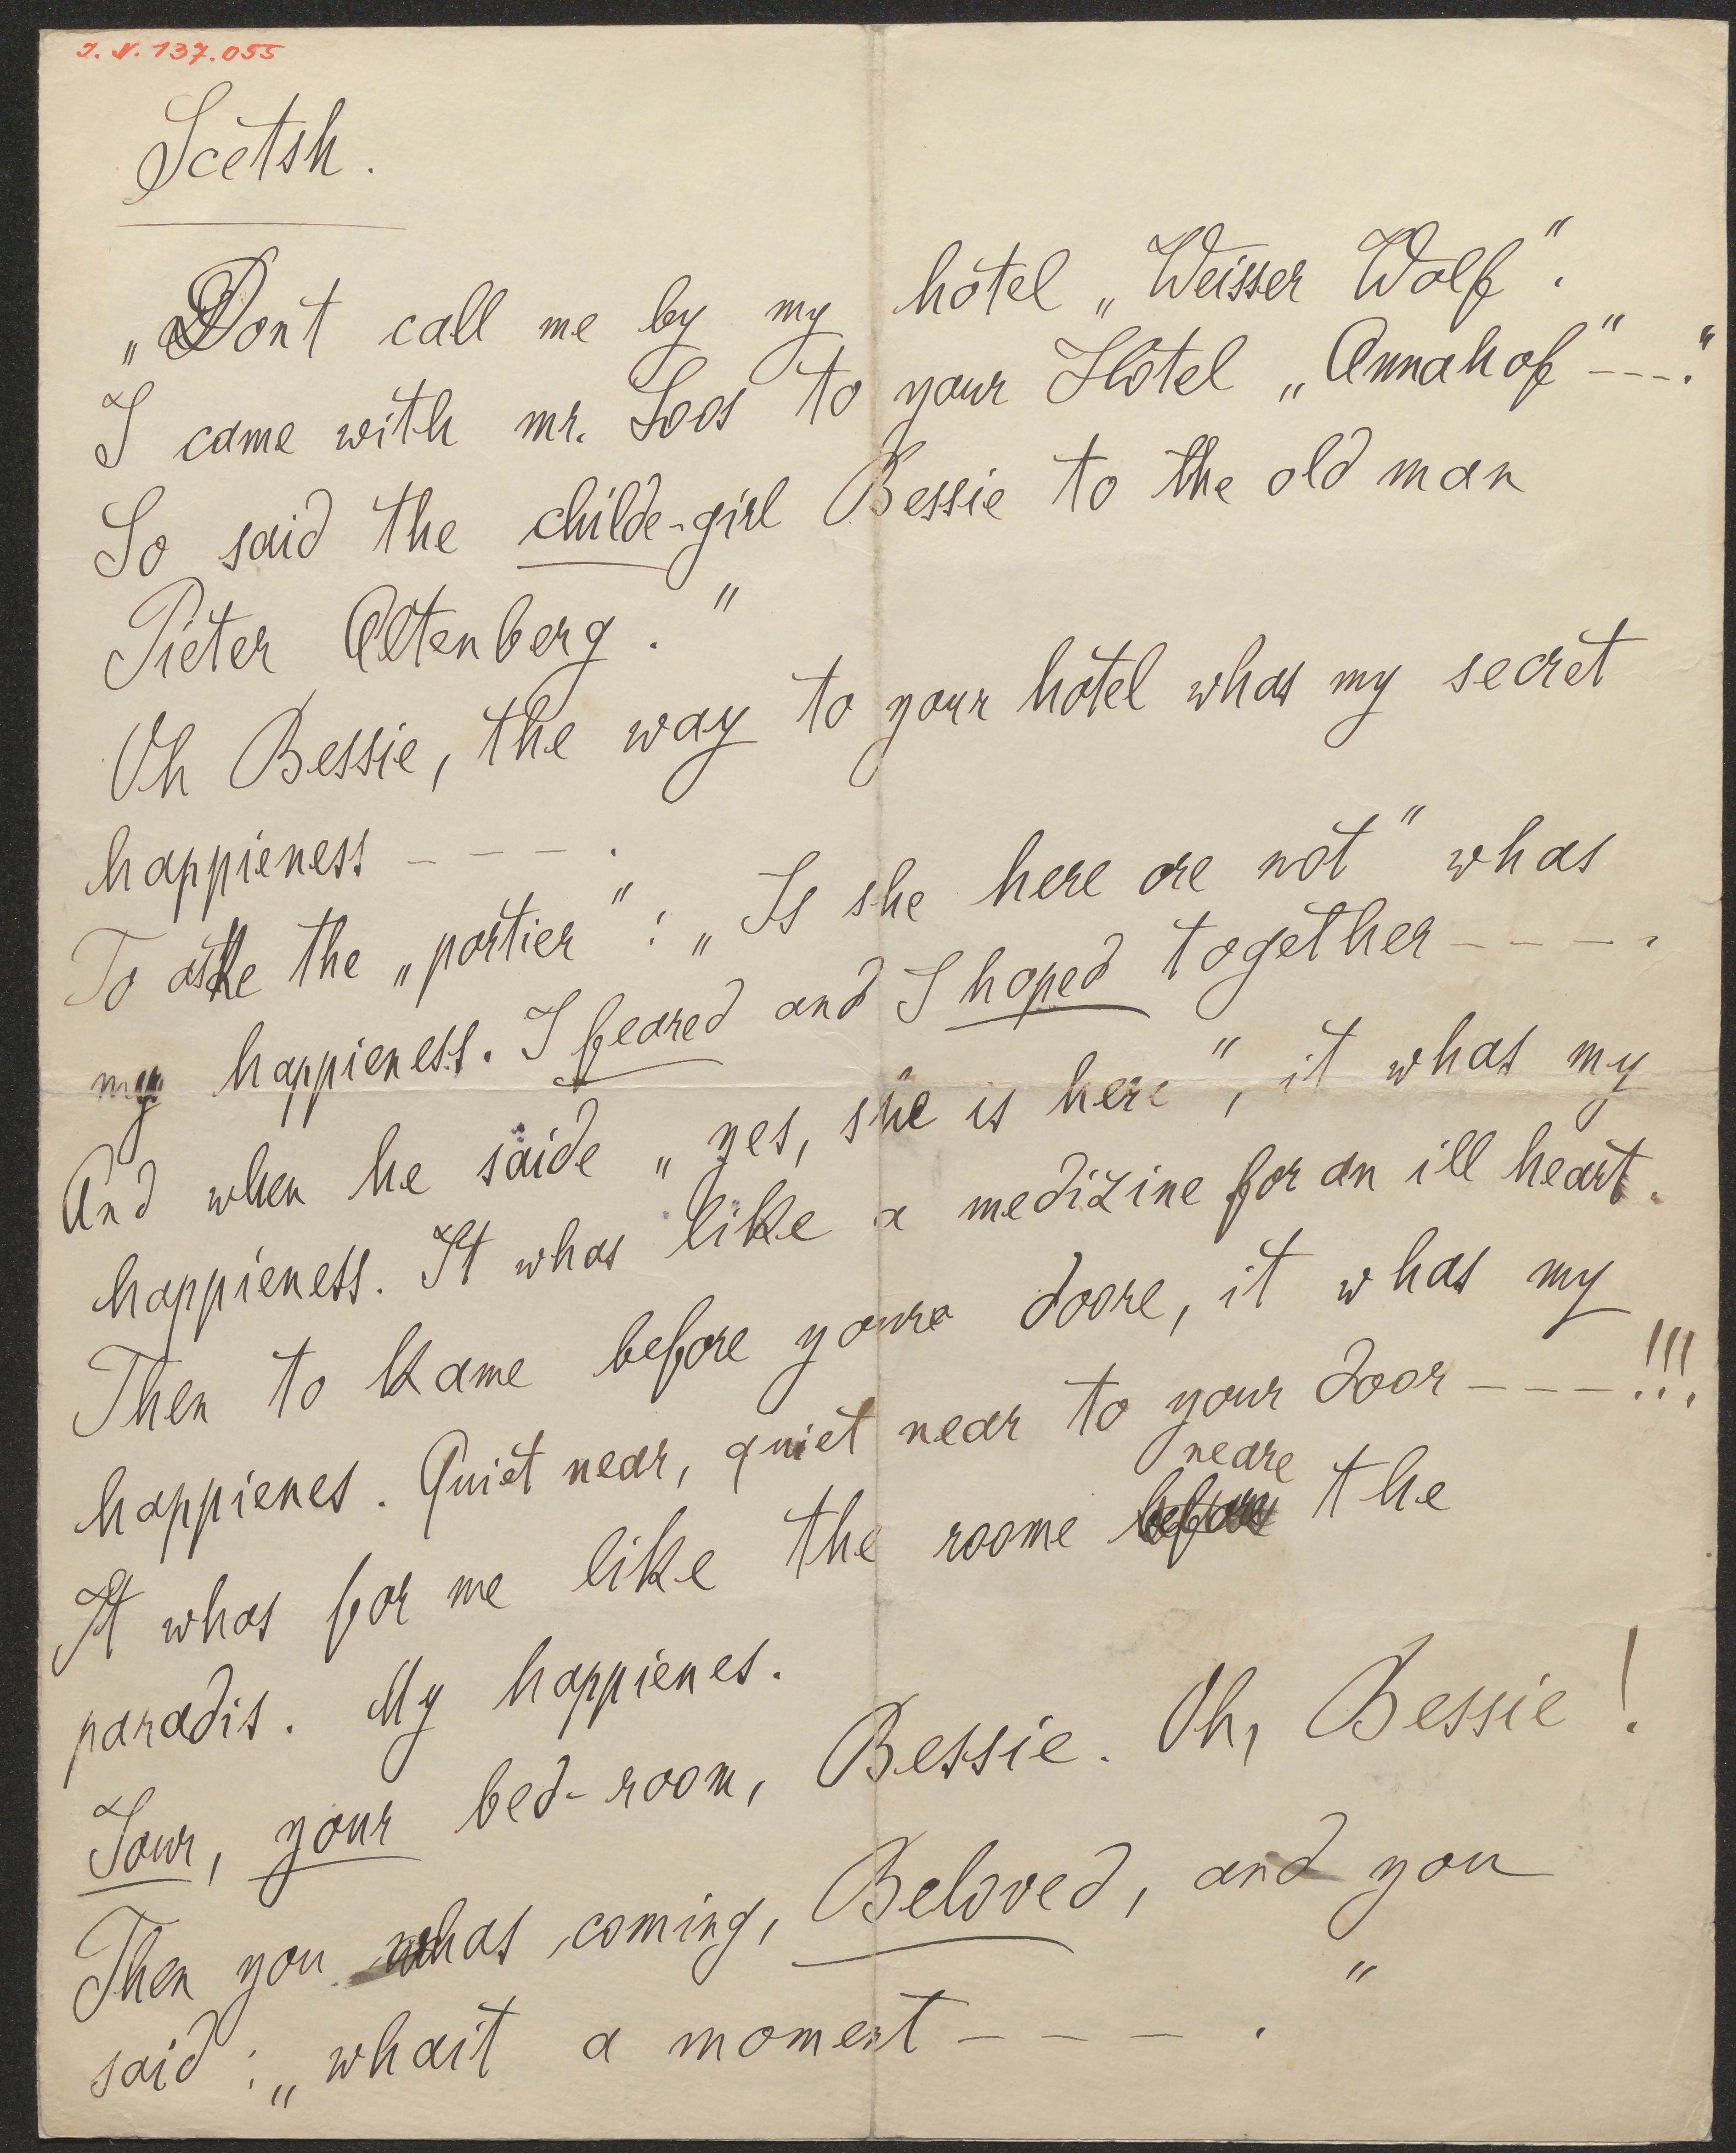 J. N. 137.055
Scetsh.
„Dont call me by my hôtel „Weisser Wolf".
I came with mr. Loos to your Hôtel „Annahof" - - - ."
So said the childe-girl Bessie to the old man
Pieter Altenberg."
Oh Bessie, the way to your hôtel whas my secret
happieness - - - .
To aske the „portier": „Is she here ore not" whas
my happieness. I feared and I hoped together - - - - .
And when he saide „yes, she is here", it whas my
happieness. It whas like a medizine for an ill heart.
Then to kame before youre doore, it whas my
happienes. Quiet near, quiet near to your door - - - - !!!
neare
It whas for me like the roome before the
paradis. My happienes.
Your, your bed-room, Bessie. Oh, Bessie!
Then you whas coming, Beloved, and you
said: „whait a moment - - - ."